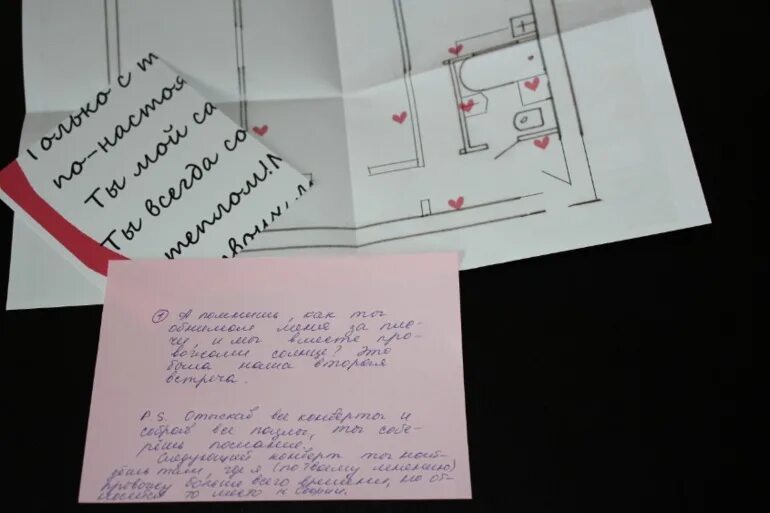 Только с т
по-настоя
Ты мой са
Ты всегда со
теплом!
① А помнишь, как ты
обнимал меня за пле-
чи, и мы вместе про-
вожали солнце? Это
была наша вторая
встреча.
P.S. Отыскав все конверты и
собрав все пазлы, ты собе-
рёшь послание.
Следующий конверт ты най-
дёшь там, где я (по твоему мнению)
провожу больше всего времени, но от-
то место к